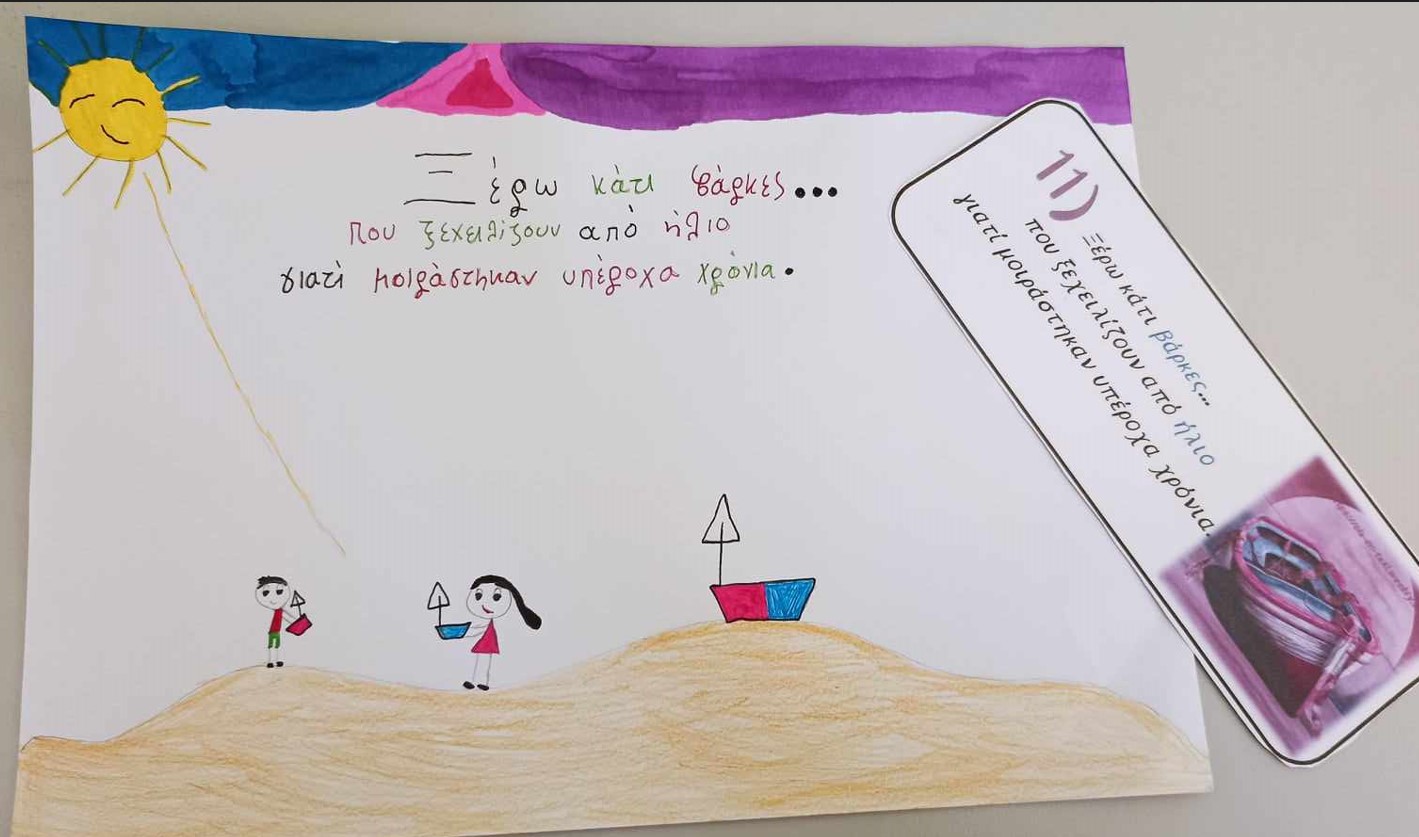 Ξέρω κάτι βάρκες...
που ξεχειλίζουν από ήλιο
γιατί μοιράστηκαν υπέροχα χρόνια.
11)
Ξέρω κάτι βάρκες...
που ξεχειλίζουν από ήλιο
γιατί μοιράστηκαν υπέροχα χρόνια.